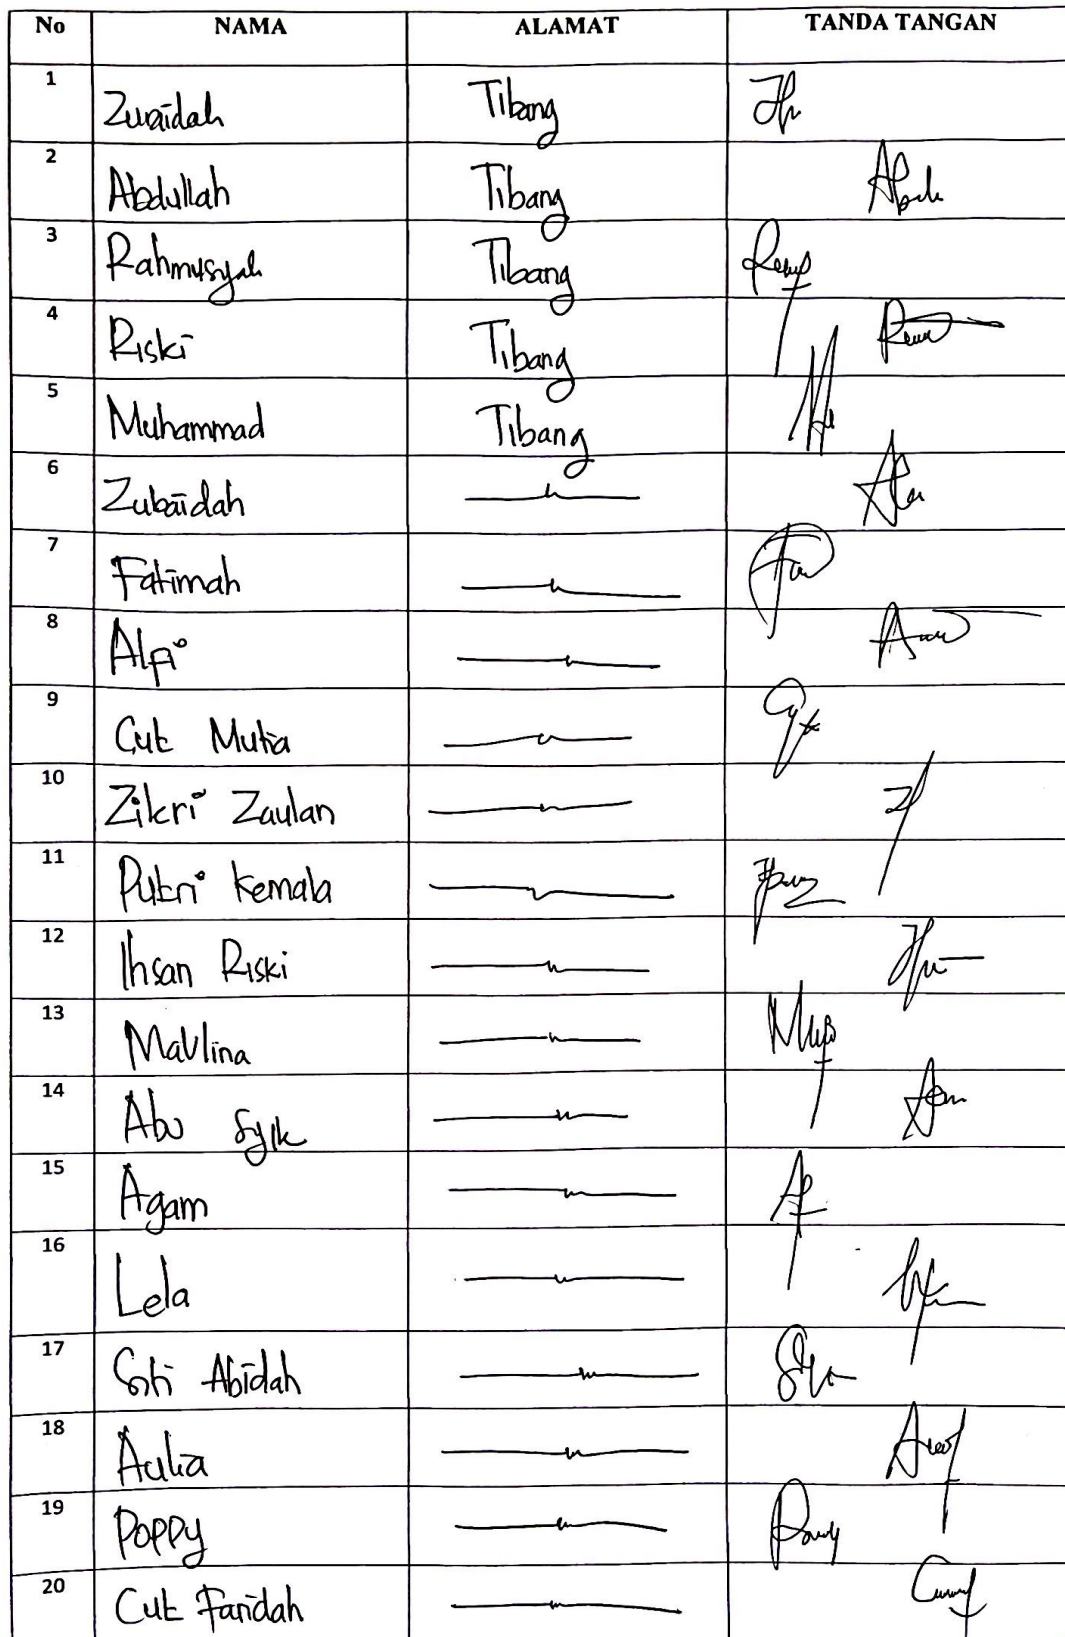 No NAMA ALAMAT TANDA TANGAN
1 Zuraidah Tibang
2 Abdullah Tibang
3 Rahmusyah Tibang
4 Riski Tibang
5 Muhammad Tibang
6 Zubaidah
7 Fatimah
8 Alfi
9 Cut Mutia
10 Zikri Zaulan
11 Putri Kemala
12 Ihsan Riski
13 Maulina
14 Abu Syik
15 Agam
16 Lela
17 Siti Abidah
18 Aulia
19 Poppy
20 Cut Faridah